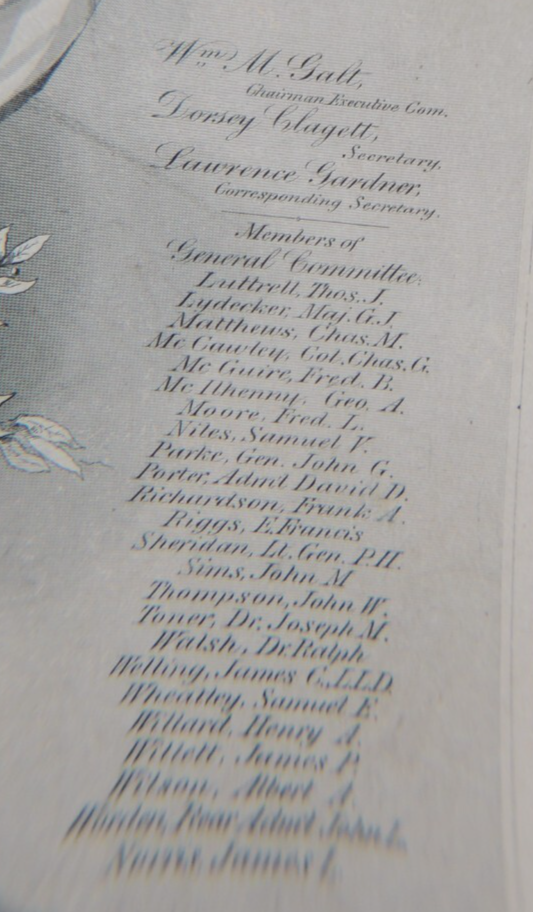 Wm M. Galt,
Chairman Executive Com.
Dorsey Clagett,
Secretary.
Lawrence Gardner,
Corresponding Secretary.
Members of
General Committee:
Luttrell, Thos. J.
Lydecker, Maj. G. J.
Matthews, Chas. M.
Mc Cawley, Col. Chas. G.
Mc Guire, Fred. B.
Mc Ilhenny, Geo. A.
Moore, Fred. L.
Niles, Samuel V.
Parke, Gen. John G.
Porter, Adml David D.
Richardson, Frank A.
Riggs, E. Francis
Sheridan, Lt. Gen. P. H.
Sims, John M
Thompson, John W.
Toner, Dr. Joseph M.
Walsh, Dr. Ralph
Welling, James C., L.L.D.
Wheatley, Samuel E.
Willard, Henry A.
Willett, James P.
Wilson, Albert A.
Worden, Rear Adml John L.
Norris, James L.